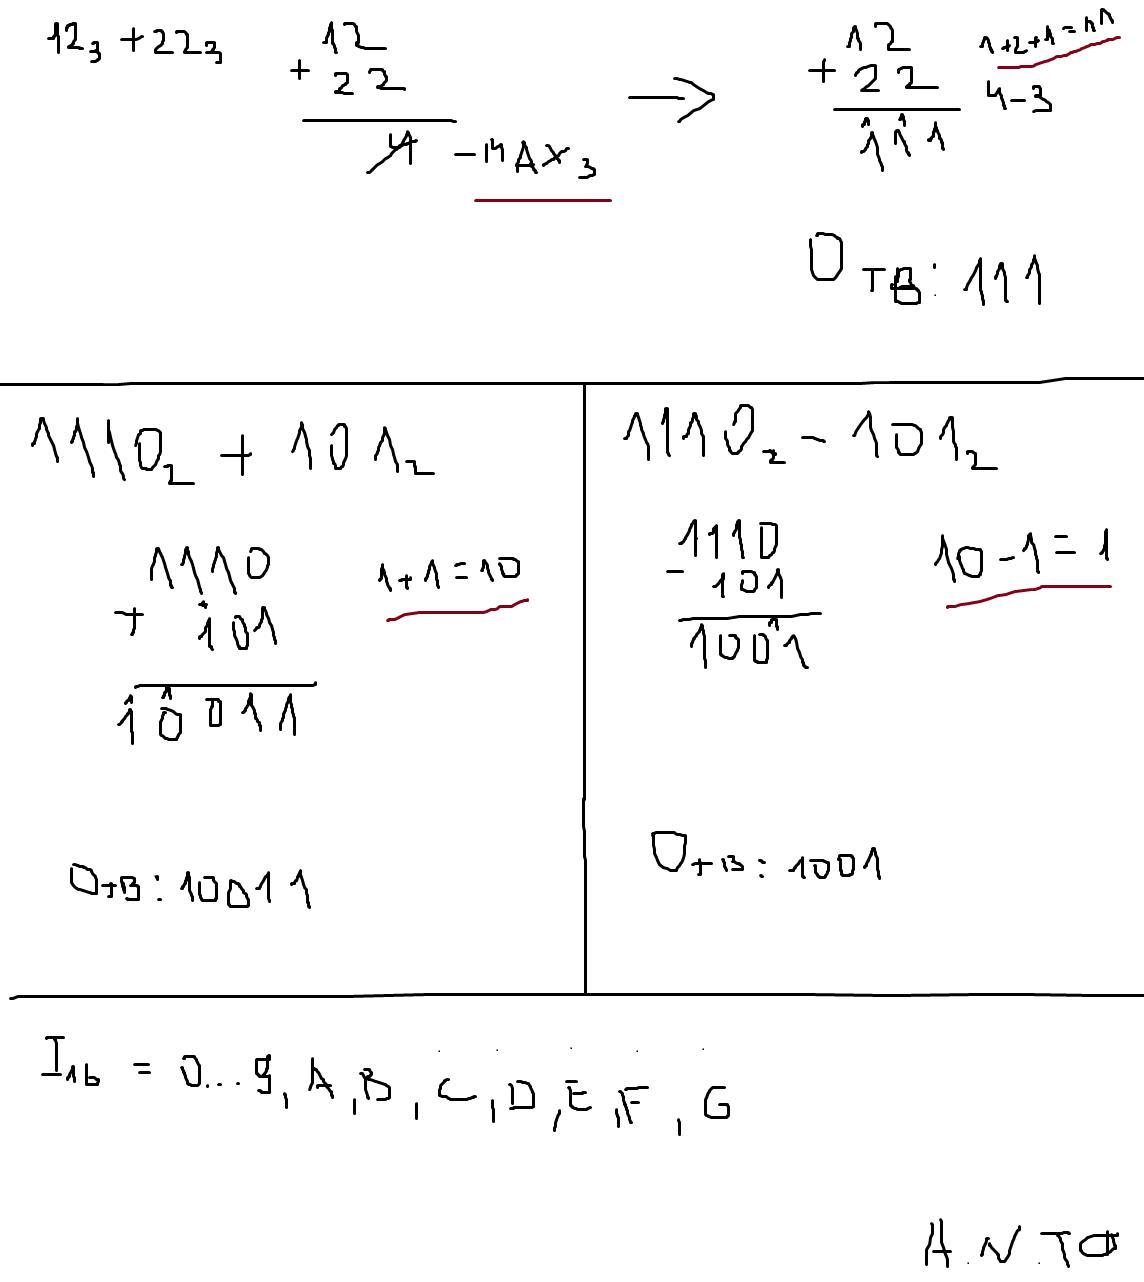 12₃ + 22₃
12
+ 22
4 - MAX 3
→
12
+ 22
111
1+2+1=11
4-3
Отв: 111
1110₂ + 101₂
1110
+ 101
10011
1+1=10
Отв: 10011
1110₂ - 101₂
1110
- 101
1001
10-1=1
Отв: 1001
I₁₆ = 0...9, A, B, C, D, E, F, G